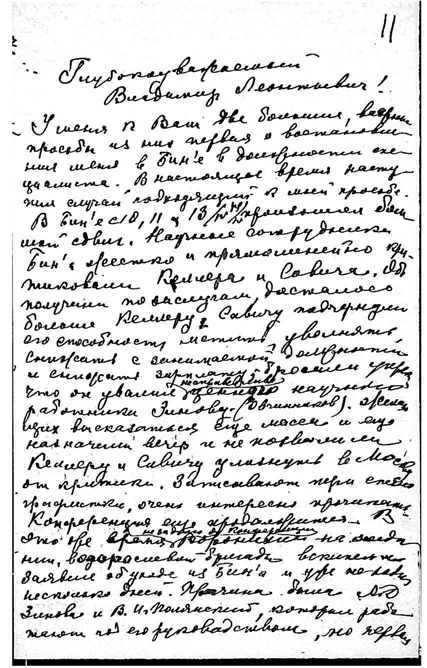 11
Глубокоуважаемый
Владимир Леонтьевич!
У меня к Вам две большие,
просьбы из них первая о востановле-
ния меня в Бин'е в должности спе-
циалиста. В настоящее время насту-
пил случай подходящий к моей просьбе.
В Бин'е с 10, 11 и 13/IV произошел боль-
шой сдвиг. Научные сотрудники
Бин'а жестко и прямолинейно кри-
тиковали Келлера и Савича. Оба
получили по заслугам, досталось
больше Келлеру, Савичу подчеркнули
его способность увольнять,
снижать с занимаемой должности
и снижать зарплату, бросили упрек
что он уволил ценного научного
работника Зинову (Овчинников).
щих высказаться еще масса и еще
назначили вечер и не позволили
Келлеру и Савичу улизнуть в Москву
от критики. Записывают пером стено-
графистки, очень интересно прочитать
Конференция еще продолжается. В
это же время на засида-
нии, водорослевой бригады
заявил об уходе из Бин'а и уже не
несколько дней. Причина была А.Д.
Зинова и В.И. Полянский, которым рабо-
тают под его руководством, но первая